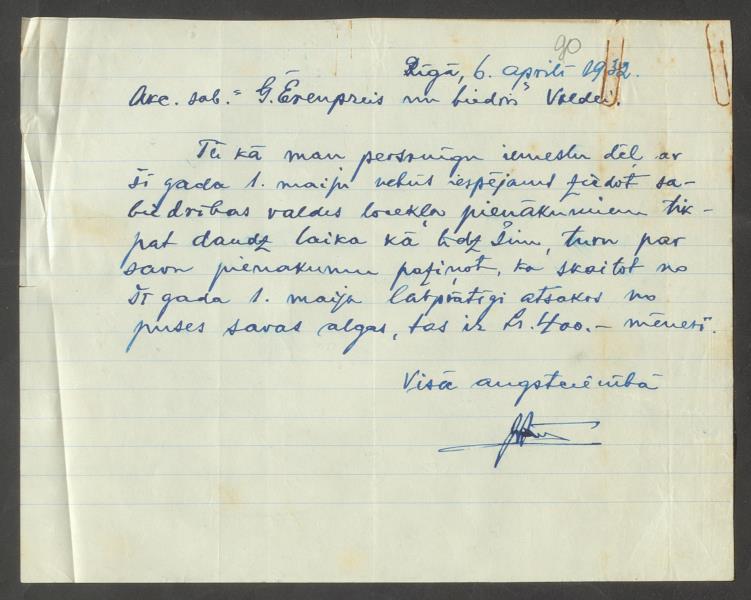 90
Rīgā, 6. aprīlī 1932.
Akc. sab. "G. Ērenpreis un biedri" Valdei.
Tā kā man personīgu iemeslu dēļ ar
šī gada 1. maiju nebūs iespējams ziedot sa-
biedrības valdes locekļa pienākumiem tik-
pat daudz laika kā līdz šim, turu par
savu pienākumu paziņot, ka skaitot no
šī gada 1. maija labprātīgi atsakos no
puses savas algas, tas ir Ls. 400.- mēnesī.
Visā augstcienībā